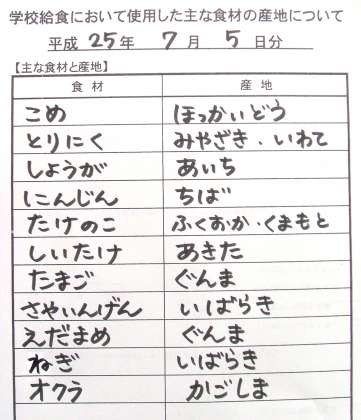 学校給食において使用した主な食材の産地について
平成 25年 7月 5日分
【主な食材と産地】
食材 産地
こめ ほっかいどう
とりにく みやざき・いわて
しょうが あいち
にんじん ちば
たけのこ ふくおか・くまもと
しいたけ あきた
たまご ぐんま
さやいんげん いばらき
えだまめ ぐんま
ねぎ いばらき
オクラ かごしま